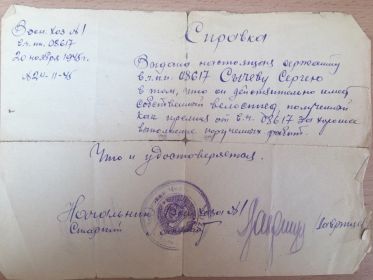 Воен. хоз №1
в.ч. пп. 08617
20 ноября 1945 г.
№24-11-45
Справка
Выдана настоящая сержанту
в.ч. пп. 08617 Сычеву Сергею
в том, что он действительно имеет
собственный велосипед полученный
как премия от в.ч. 08617 за хорошее
выполнение порученных работ.
Что и удостоверяется.
Начальник Воен. Хоза №1
Старший